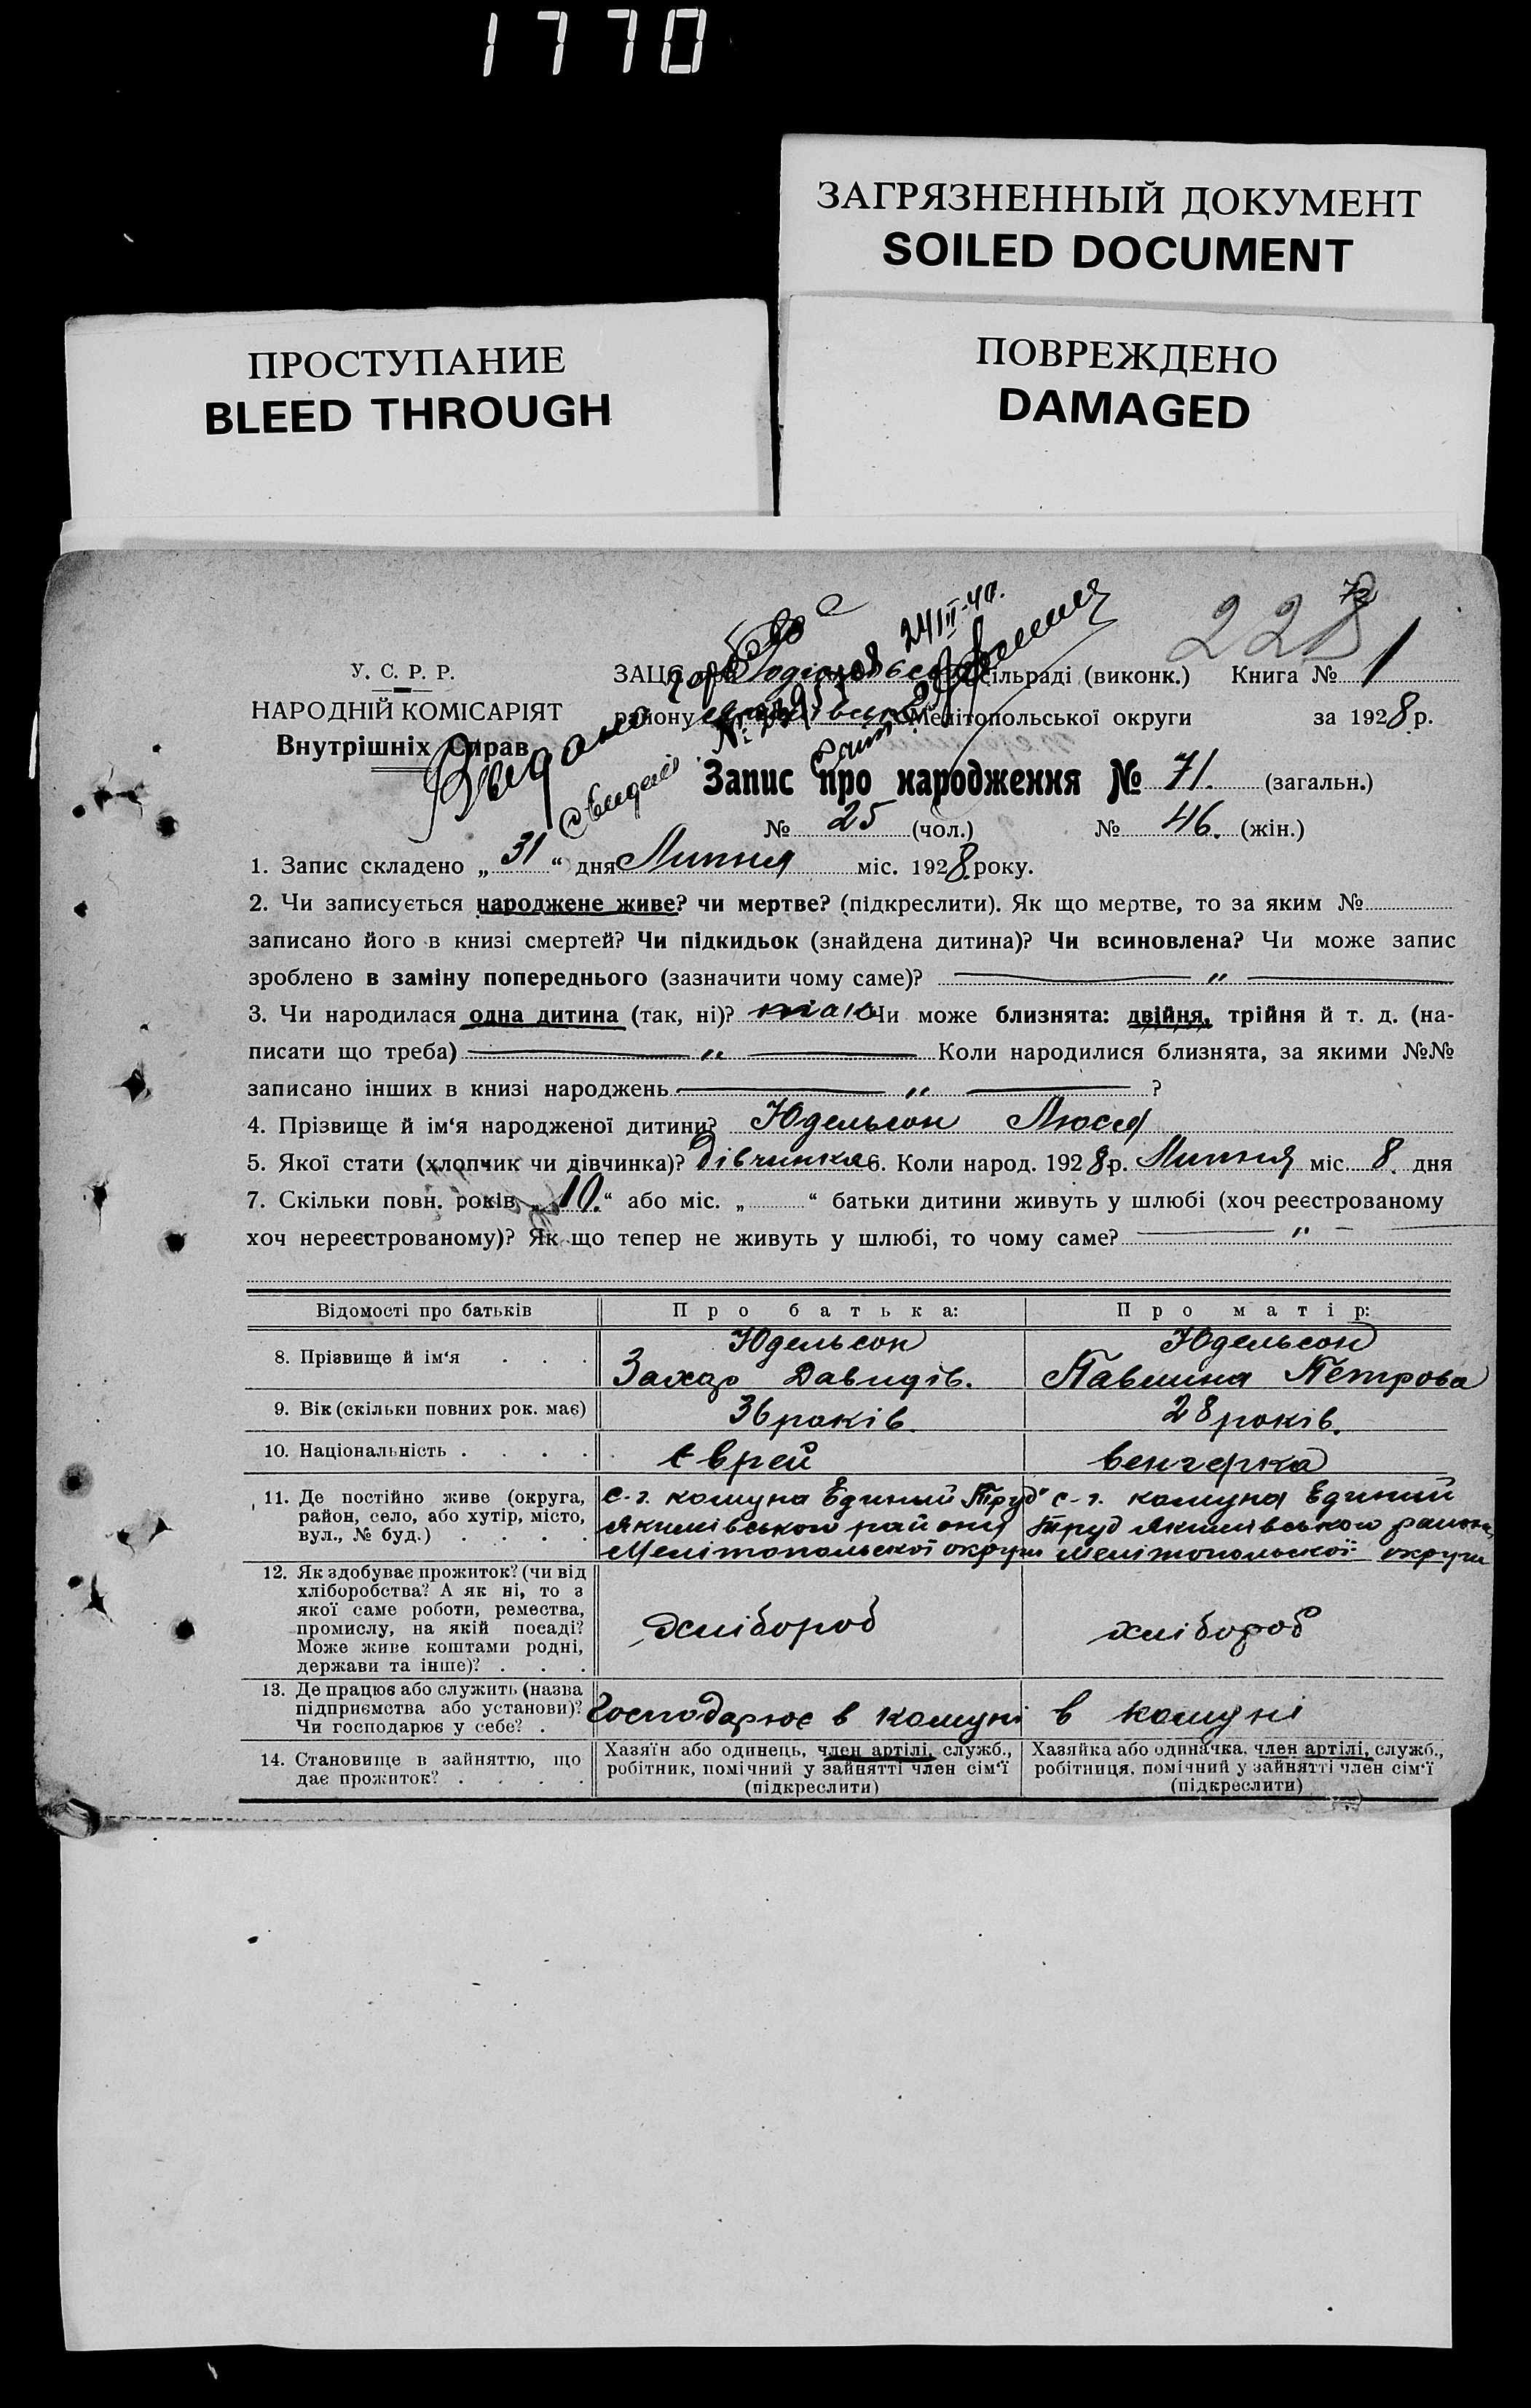 1770
ЗАГРЯЗНЕННЫЙ ДОКУМЕНТ
SOILED DOCUMENT
ПРОСТУПАНИЕ
BLEED THROUGH
ПОВРЕЖДЕНО
DAMAGED
24/II-40.
228
У. С. Р. Р.
НАРОДНІЙ КОМІСАРІЯТ
Внутрішніх Справ
ЗАЦС при сільраді (виконк.) Книга № 1
району Мелітопольської округи за 1928 р.
Видано
Запис про народження № 71. (загальн.)
№ 25 (чол.) № 46. (жін.)
1. Запис складено „31“ дня Липня міс. 1928 року.
2. Чи записується народжене живе? чи мертве? (підкреслити). Як що мертве, то за яким №
записано його в книзі смертей? Чи підкидьок (знайдена дитина)? Чи всиновлена? Чи може запис
зроблено в заміну попереднього (зазначити чому саме)? — „ —
3. Чи народилася одна дитина (так, ні)? так Чи може близнята: двійня, трійня й т. д. (на-
писати що треба) — „ — Коли народилися близнята, за якими №№
записано інших в книзі народжень — „ — ?
4. Прізвище й ім‘я народженої дитини? Юдельсон Люся
5. Якої стати (хлопчик чи дівчинка)? Дівчинка 6. Коли народ. 1928 р. Липня міс. 8. дня
7. Скільки повн. років „10.“ або міс. „ “ батьки дитини живуть у шлюбі (хоч реєстрованому
хоч нереєстрованому)? Як що тепер не живуть у шлюбі, то чому саме? — „ —
Відомості про батьків Про батька: Про матір:
8. Прізвище й ім‘я . . . Юдельсон Захар Давидів. Юдельсон Павлина Петрова
9. Вік (скільки повних рок. має) 36 років. 28 років.
10. Національність . . . . Єврей венгерка
11. Де постійно живе (округа, район, село, або хутір, місто, вул., № буд.) . . . .
с-г. комуна Единий Труд" Якимівського району Мелітопольської округи
с-г. комуна Единий Труд Якимівського району Мелітопольської округи
12. Як здобуває прожиток? (чи від хліборобства? А як ні, то з якої саме роботи, ремества, промислу, на якій посаді? Може живе коштами родні, держави та інше)? . . .
хлібороб хлібороб
13. Де працює або служить (назва підприємства або установи)? Чи господарює у себе? .
Господарює в комуні в комуні
14. Становище в зайняттю, що дає прожиток? . . . .
Хазяїн або одинець, член артілі, служб., робітник, помічний у зайнятті член сім‘ї (підкреслити)
Хазяйка або одиначка, член артілі, служб., робітниця, помічний у зайнятті член сім‘ї (підкреслити)